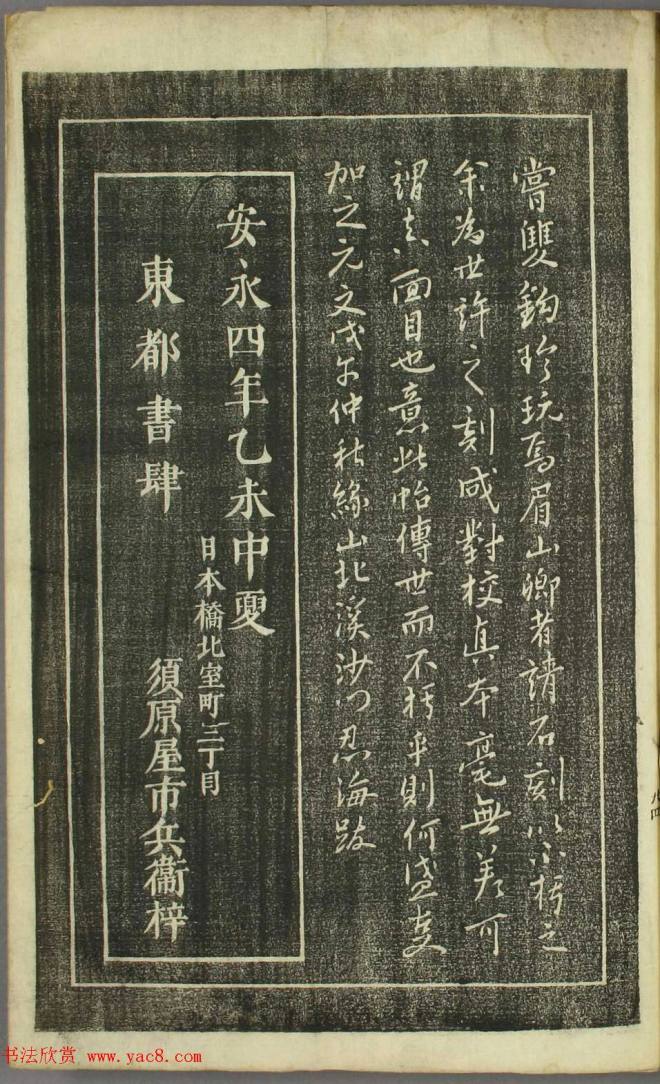 嘗雙鉤珍玩焉眉山卿者請石刻以不朽之
余為世許之刻成對校真本毫無差可
謂真面目也意此帖傳世而不朽乎則何盛更
加之元文戊午仲秋絲山北溪沙門忍海跋
安永四年乙未中夏
東都書肆
日本橋北室町三丁目
須原屋市兵衞梓
书法欣赏 www.yac8.com